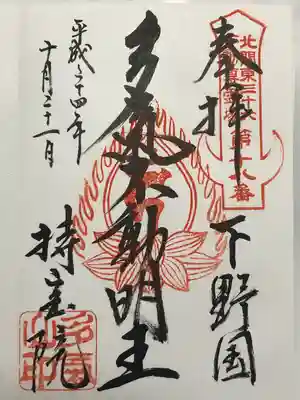 奉拝
下野国
北関東三十六
不動尊霊場第十八番
多氣不動明王
平成二十四年
十月二十一日
持宝院